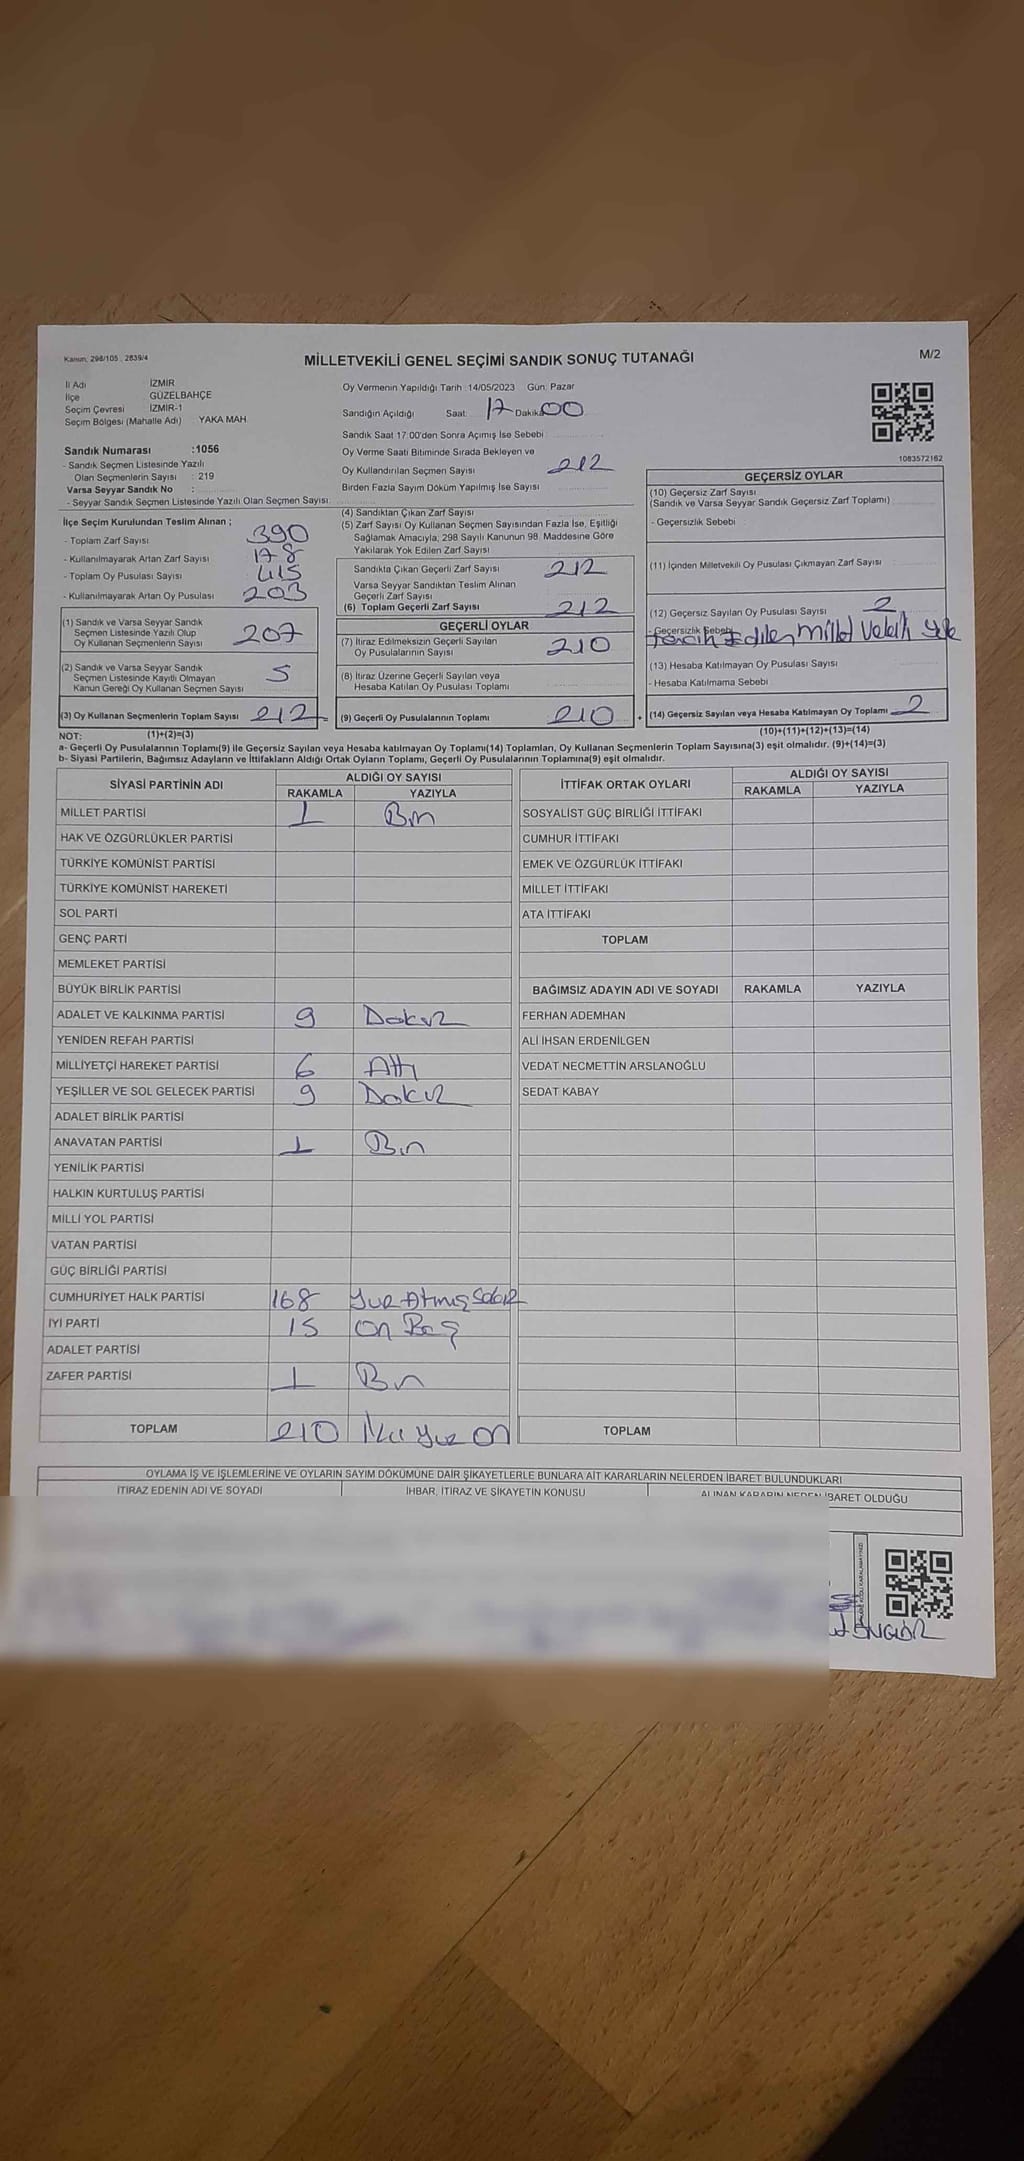 Kanun, 298/105 , 2839/4
MİLLETVEKİLİ GENEL SEÇİMİ SANDIK SONUÇ TUTANAĞI
M/2
İl Adı İZMİR
İlçe GÜZELBAHÇE
Seçim Çevresi İZMİR-1
Seçim Bölgesi (Mahalle Adı) : YAKA MAH.
Sandık Numarası :1056
- Sandık Seçmen Listesinde Yazılı
Olan Seçmenlerin Sayısı : 219
Varsa Seyyar Sandık No :
- Seyyar Sandık Seçmen Listesinde Yazılı Olan Seçmen Sayısı:
Oy Vermenin Yapıldığı Tarih :14/05/2023 Gün: Pazar
Sandığın Açıldığı Saat: 17 Dakika 00
Sandık Saat 17:00'den Sonra Açımış İse Sebebi :
Oy Verme Saati Bitiminde Sırada Bekleyen ve
Oy Kullandırılan Seçmen Sayısı 212
Birden Fazla Sayım Döküm Yapılmış İse Sayısı
1083572162
İlçe Seçim Kurulundan Teslim Alınan ;
- Toplam Zarf Sayısı 390
- Kullanılmayarak Artan Zarf Sayısı 178
- Toplam Oy Pusulası Sayısı 415
- Kullanılmayarak Artan Oy Pusulası 203
(1) Sandık ve Varsa Seyyar Sandık
Seçmen Listesinde Yazılı Olup
Oy Kullanan Seçmenlerin Sayısı 207
(2) Sandık ve Varsa Seyyar Sandık
Seçmen Listesinde Kayıtlı Olmayan
Kanun Gereği Oy Kullanan Seçmen Sayısı 5
(3) Oy Kullanan Seçmenlerin Toplam Sayısı 212
(4) Sandıktan Çıkan Zarf Sayısı
(5) Zarf Sayısı Oy Kullanan Seçmen Sayısından Fazla İse, Eşitliği
Sağlamak Amacıyla; 298 Sayılı Kanunun 98. Maddesine Göre
Yakılarak Yok Edilen Zarf Sayısı
Sandıkta Çıkan Geçerli Zarf Sayısı 212
Varsa Seyyar Sandıktan Teslim Alınan
Geçerli Zarf Sayısı
(6) Toplam Geçerli Zarf Sayısı 212
GEÇERLİ OYLAR
(7) İtiraz Edilmeksizin Geçerli Sayılan
Oy Pusulalarının Sayısı 210
(8) İtiraz Üzerine Geçerli Sayılan veya
Hesaba Katılan Oy Pusulası Toplamı
(9) Geçerli Oy Pusulalarının Toplamı 210 +
GEÇERSİZ OYLAR
(10) Geçersiz Zarf Sayısı
(Sandık ve Varsa Seyyar Sandık Geçersiz Zarf Toplamı)
- Geçersizlik Sebebi
(11) İçinden Milletvekili Oy Pusulası Çıkmayan Zarf Sayısı
(12) Geçersiz Sayılan Oy Pusulası Sayısı 2
- Geçersizlik Sebebi
Tercih Edilen Millet vekili yok
(13) Hesaba Katılmayan Oy Pusulası Sayısı
- Hesaba Katılmama Sebebi
(14) Geçersiz Sayılan veya Hesaba Katılmayan Oy Toplamı 2
NOT: (1)+(2)=(3) (10)+(11)+(12)+(13)=(14)
a- Geçerli Oy Pusulalarının Toplamı(9) ile Geçersiz Sayılan veya Hesaba katılmayan Oy Toplamı(14) Toplamları, Oy Kullanan Seçmenlerin Toplam Sayısına(3) eşit olmalıdır. (9)+(14)=(3)
b- Siyasi Partilerin, Bağımsız Adayların ve İttifakların Aldığı Ortak Oyların Toplamı, Geçerli Oy Pusulalarının Toplamına(9) eşit olmalıdır.
SİYASİ PARTİNİN ADI ALDIĞI OY SAYISI
RAKAMLA YAZIYLA
MİLLET PARTİSİ 1 Bir
HAK VE ÖZGÜRLÜKLER PARTİSİ
TÜRKİYE KOMÜNİST PARTİSİ
TÜRKİYE KOMÜNİST HAREKETİ
SOL PARTİ
GENÇ PARTİ
MEMLEKET PARTİSİ
BÜYÜK BİRLİK PARTİSİ
ADALET VE KALKINMA PARTİSİ 9 Dokuz
YENİDEN REFAH PARTİSİ
MİLLİYETÇİ HAREKET PARTİSİ 6 Altı
YEŞİLLER VE SOL GELECEK PARTİSİ 9 Dokuz
ADALET BİRLİK PARTİSİ
ANAVATAN PARTİSİ 1 Bir
YENİLİK PARTİSİ
HALKIN KURTULUŞ PARTİSİ
MİLLİ YOL PARTİSİ
VATAN PARTİSİ
GÜÇ BİRLİĞİ PARTİSİ
CUMHURİYET HALK PARTİSİ 168 Yüz Atmış Sekiz
İYİ PARTİ 15 On Beş
ADALET PARTİSİ
ZAFER PARTİSİ 1 Bir
TOPLAM 210 İki Yüz On
İTTİFAK ORTAK OYLARI ALDIĞI OY SAYISI
RAKAMLA YAZIYLA
SOSYALİST GÜÇ BİRLİĞİ İTTİFAKI
CUMHUR İTTİFAKI
EMEK VE ÖZGÜRLÜK İTTİFAKI
MİLLET İTTİFAKI
ATA İTTİFAKI
TOPLAM
BAĞIMSIZ ADAYIN ADI VE SOYADI RAKAMLA YAZIYLA
FERHAN ADEMHAN
ALİ İHSAN ERDENİLGEN
VEDAT NECMETTİN ARSLANOĞLU
SEDAT KABAY
TOPLAM
OYLAMA İŞ VE İŞLEMLERİNE VE OYLARIN SAYIM DÖKÜMÜNE DAİR ŞİKAYETLERLE BUNLARA AİT KARARLARIN NELERDEN İBARET BULUNDUKLARI
İTİRAZ EDENİN ADI VE SOYADI İHBAR, İTİRAZ VE ŞİKAYETİN KONUSU ALINAN KARARIN NEDEN İBARET OLDUĞU